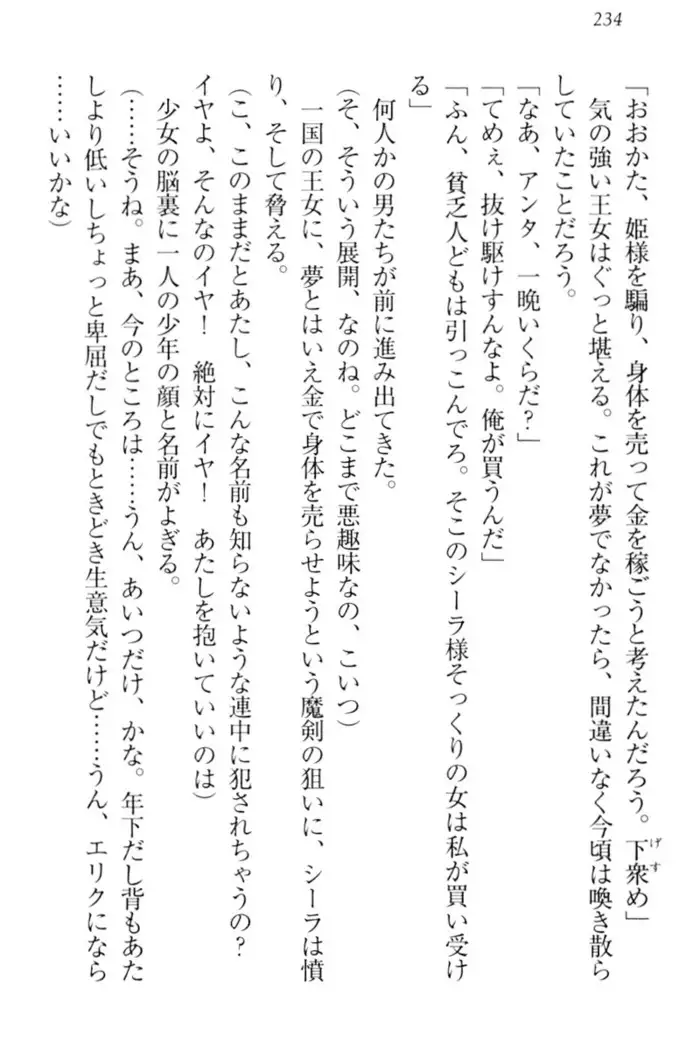 234
「おおかた、姫様を騙り、身体を売って金を稼ごうと考えたんだろう。下衆め」
げす
気の強い王女はぐっと堪える。これが夢でなかったら、間違いなく今頃は喚き散ら
していたことだろう。
「なあ、アンタ、一晩いくらだ？」
「てめぇ、抜け駆けすんなよ。俺が買うんだ」
「ふん、貧乏人どもは引っこんでろ。そこのシーラ様そっくりの女は私が買い受け
る」
何人かの男たちが前に進み出てきた。
（そ、そういう展開、なのね。どこまで悪趣味なの、こいつ）
一国の王女に、夢とはいえ金で身体を売らせようという魔剣の狙いに、シーラは憤
り、そして脅える。
（こ、このままだとあたし、こんな名前も知らないような連中に犯されちゃうの？
イヤよ、そんなのイヤ！　絶対にイヤ！　あたしを抱いていいのは）
少女の脳裏に一人の少年の顔と名前がよぎる。
（……そうね。まあ、今のところは……うん、あいつだけ、かな。年下だし背もあた
しより低いしちょっと卑屈だしでもときどき生意気だけど……うん、エリクになら
……いいかな）